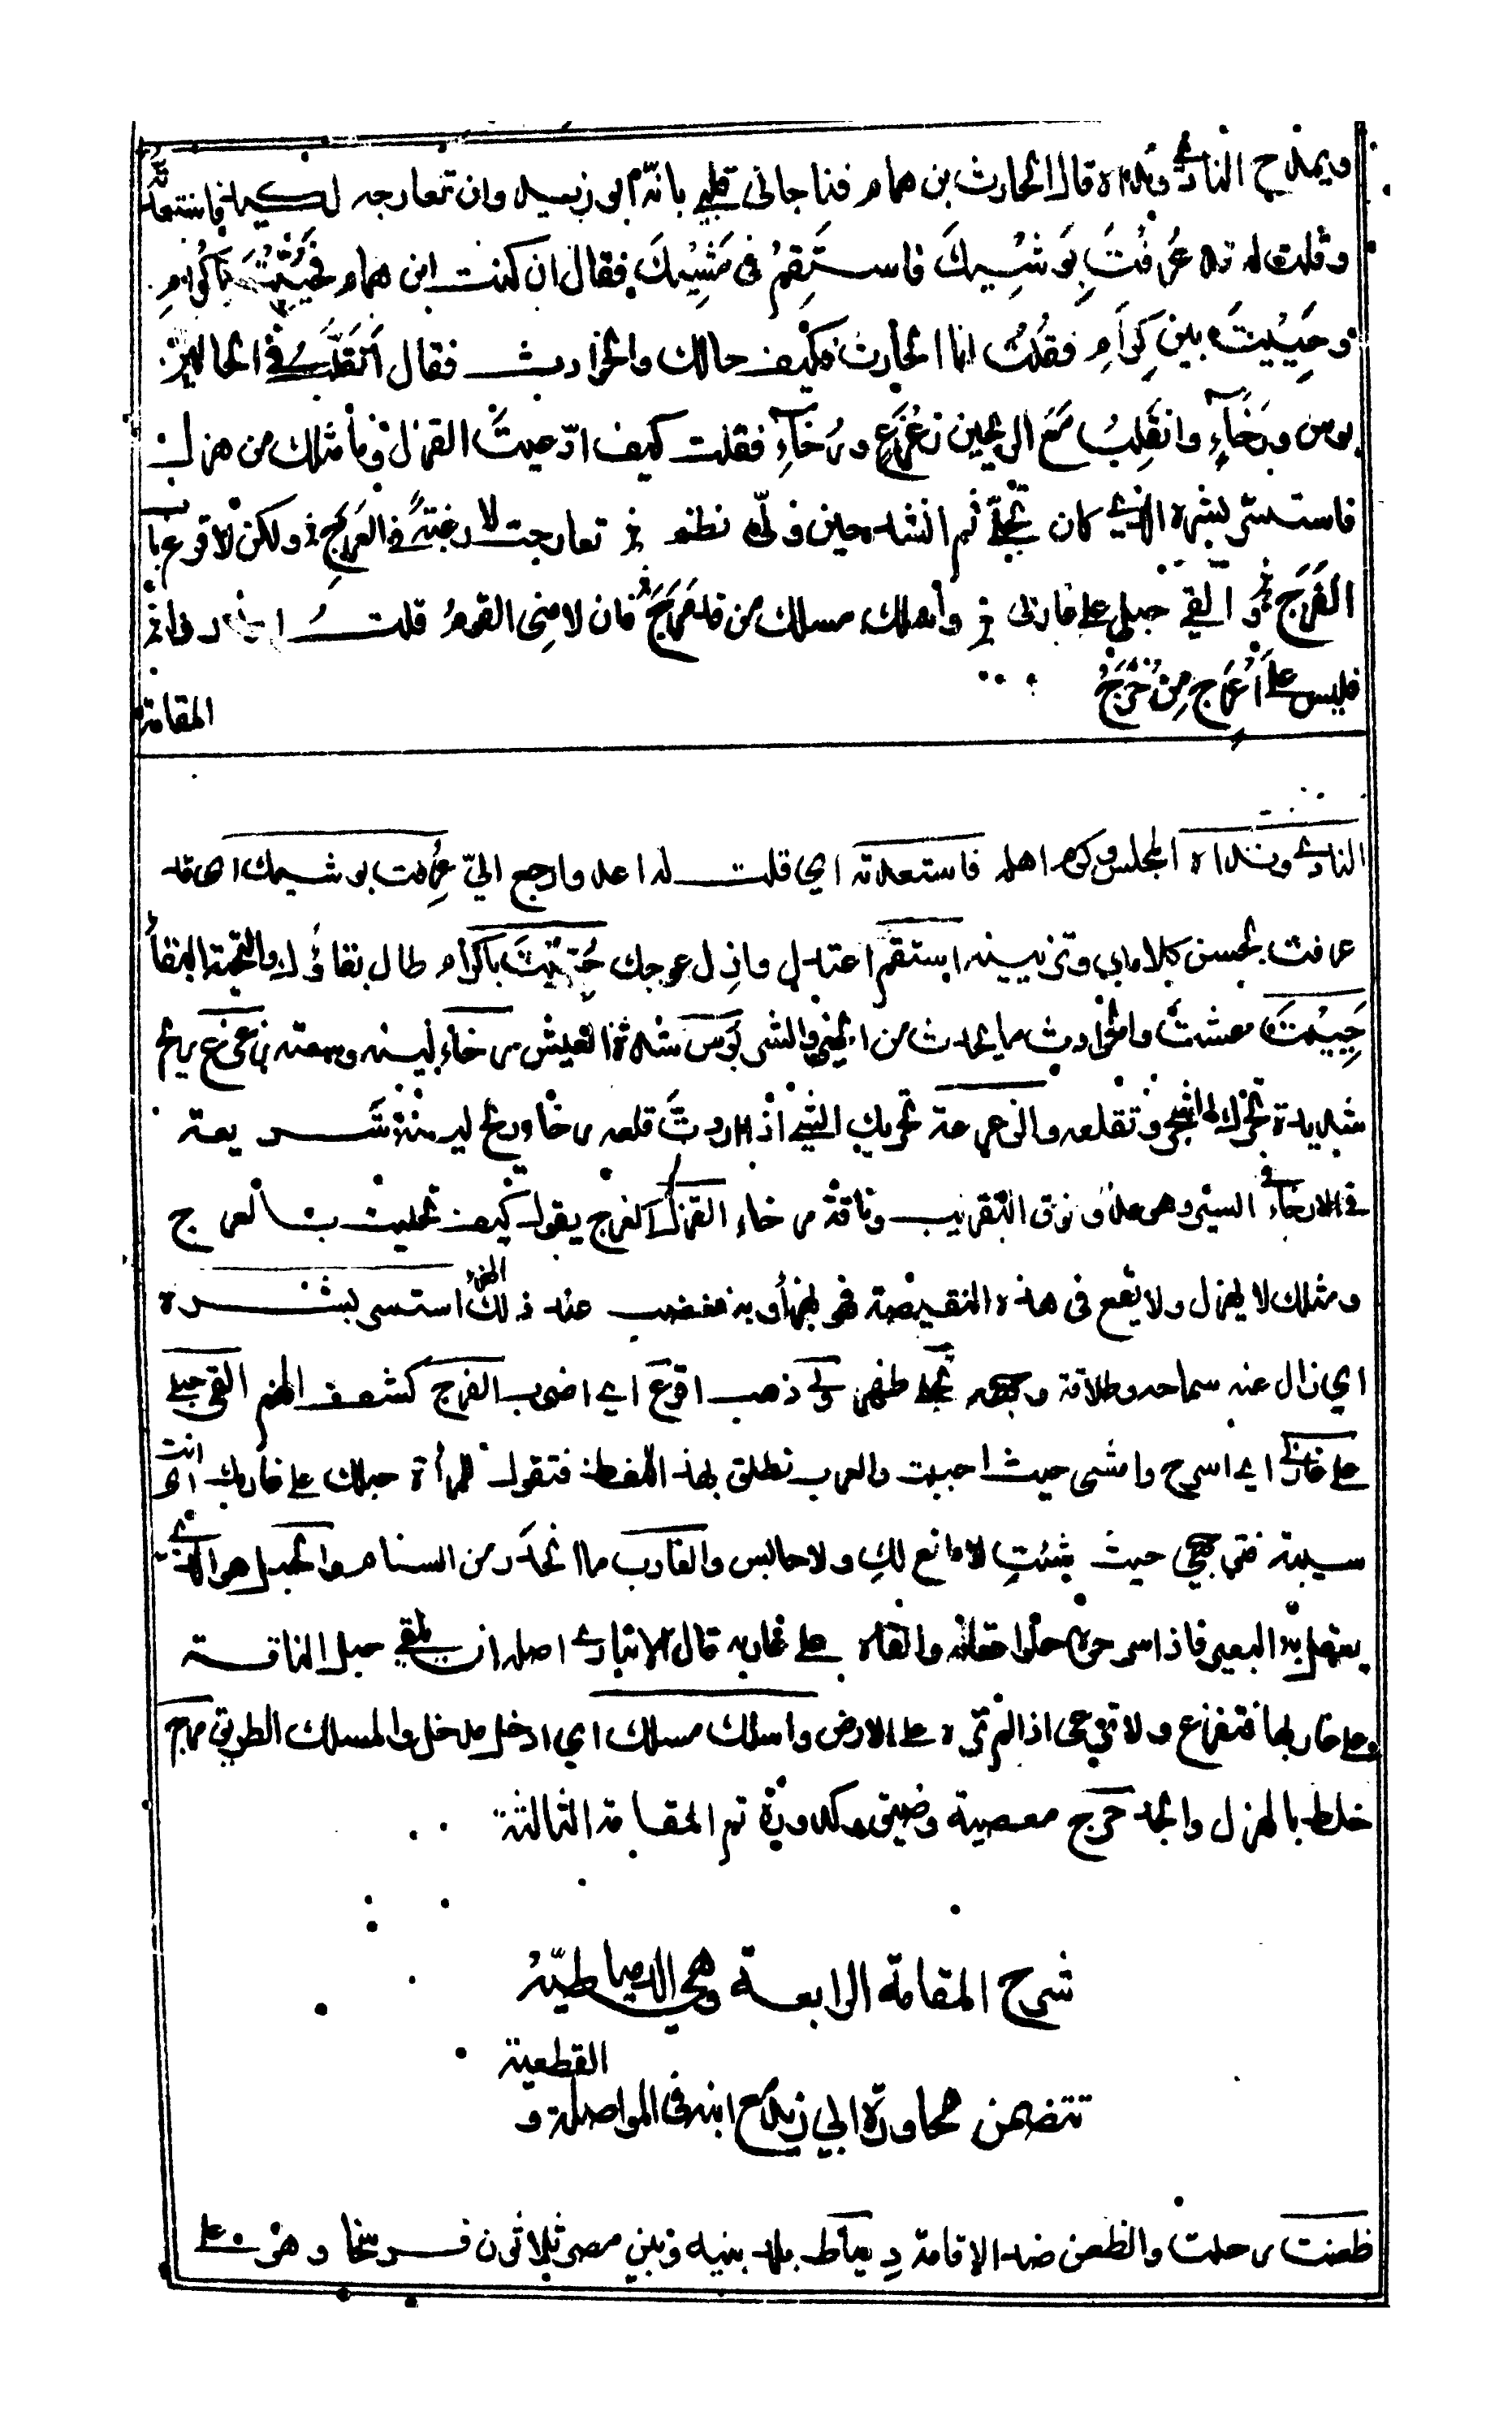 ويمدح النادي ونداه قال الحارث بن همام فناجاني قلبي بانه ابو زيد وان تعارجه لكيد فاستعدته
وقلت له قد عُرِفْتَ بِوَشْيِكَ فاستَقِمْ في مَشْيِكَ فقال ان كنت ابن همام فحُيِّيتَ باكرامٍ
وحَيِيتَ بين كِرَامٍ فقلتُ انا الحارث فكيف حالك والحوادث فقال أتقلَّبُ في الحالين
بوس ورَخَاءٍ وانقلِبُ مَعَ الريحين زعزَعٍ ورُخَاءٍ فقلت كيف ادّعيتَ القزل وما مثلك من هزل
فاستسر بشره الذي كان تجلّى ثم انشد حين ولّى نظم تعارجت لا رغبةً في العَرَجِ ولكن لاقرع باب
الفَرَج والقي حبلي على غاربي واسلك مسلك من قد مَرَجَ فان لامني القوم قلتُ اعذروني
فليس على أعرَج مِن حَرَجْ
المقامة
النادي ونداه المجلس وكرم اهله فاستعدته اي قلت له اعد وارجع اليّ عُرِفت بوشيك اي قد
عرفت بحسن كلامك وتزيينه استقم اعتدل وازل عوجك حُيِّيتَ باكرام طال بقاؤك والتحية البقا
حَيِيتَ عشتَ والحوادث ما يحدث من الخير والشر بُوس شدة العيش رخاء لينه وسعته زعزع ريح
شديدة تحرك الشجر وتقلعه والزعزعة تحريك الشي اذا اردتَ قلعه رخا وريح لينة سَريعة
في الارخاء السير وهو عدو فوق التقريب وناقة مرخاء القزل العرج يقول كيف تحليت بالعرج
ومثلك لا يهزل ولا يقع في هذه النقيصة فهو يهزأ به فغضب عند ذلك استسر بشره
اي زال عنه سماحه وطلاقة وجهه تجلى ظهر ولّى ذهب اقرع اي اضرب الفرج كشف الهم القي حبلي
على غاربي اي اسرح وامشى حيث احببت والعرب تطلق بهذا اللفظ فتقول للمرأة حبلك على غاربك اي انت
سيبة فتوجهي حيث شئتِ لا مانع لكِ ولا حابس والغارب ما انحدَر من السنام والحبل هو الذي
يعتقل به البعير فاذا سرحوه حلوا عقاله والقاه على غاربه قال الانباري اصله ان يلقي حبل الناقة
على غاربها فتفزع ولا ترعى اذا لم تره على الارض واسلك مسلك اي ادخل مدخل والمسلك الطريق مرج
خلط بالهزل والجد حرج معصية وضيق وكدورة تم المقامة الثالثة
شرح المقامة الرابعة وهي الدمياطيّة
تتضمن محاورة ابي زيد مع ابنه في المواصلة و القطعية
ظعنت رحلت والظعن ضد الاقامة دِمياط بلد بينه وبين مصر ثلاثون فرسخا وهو على